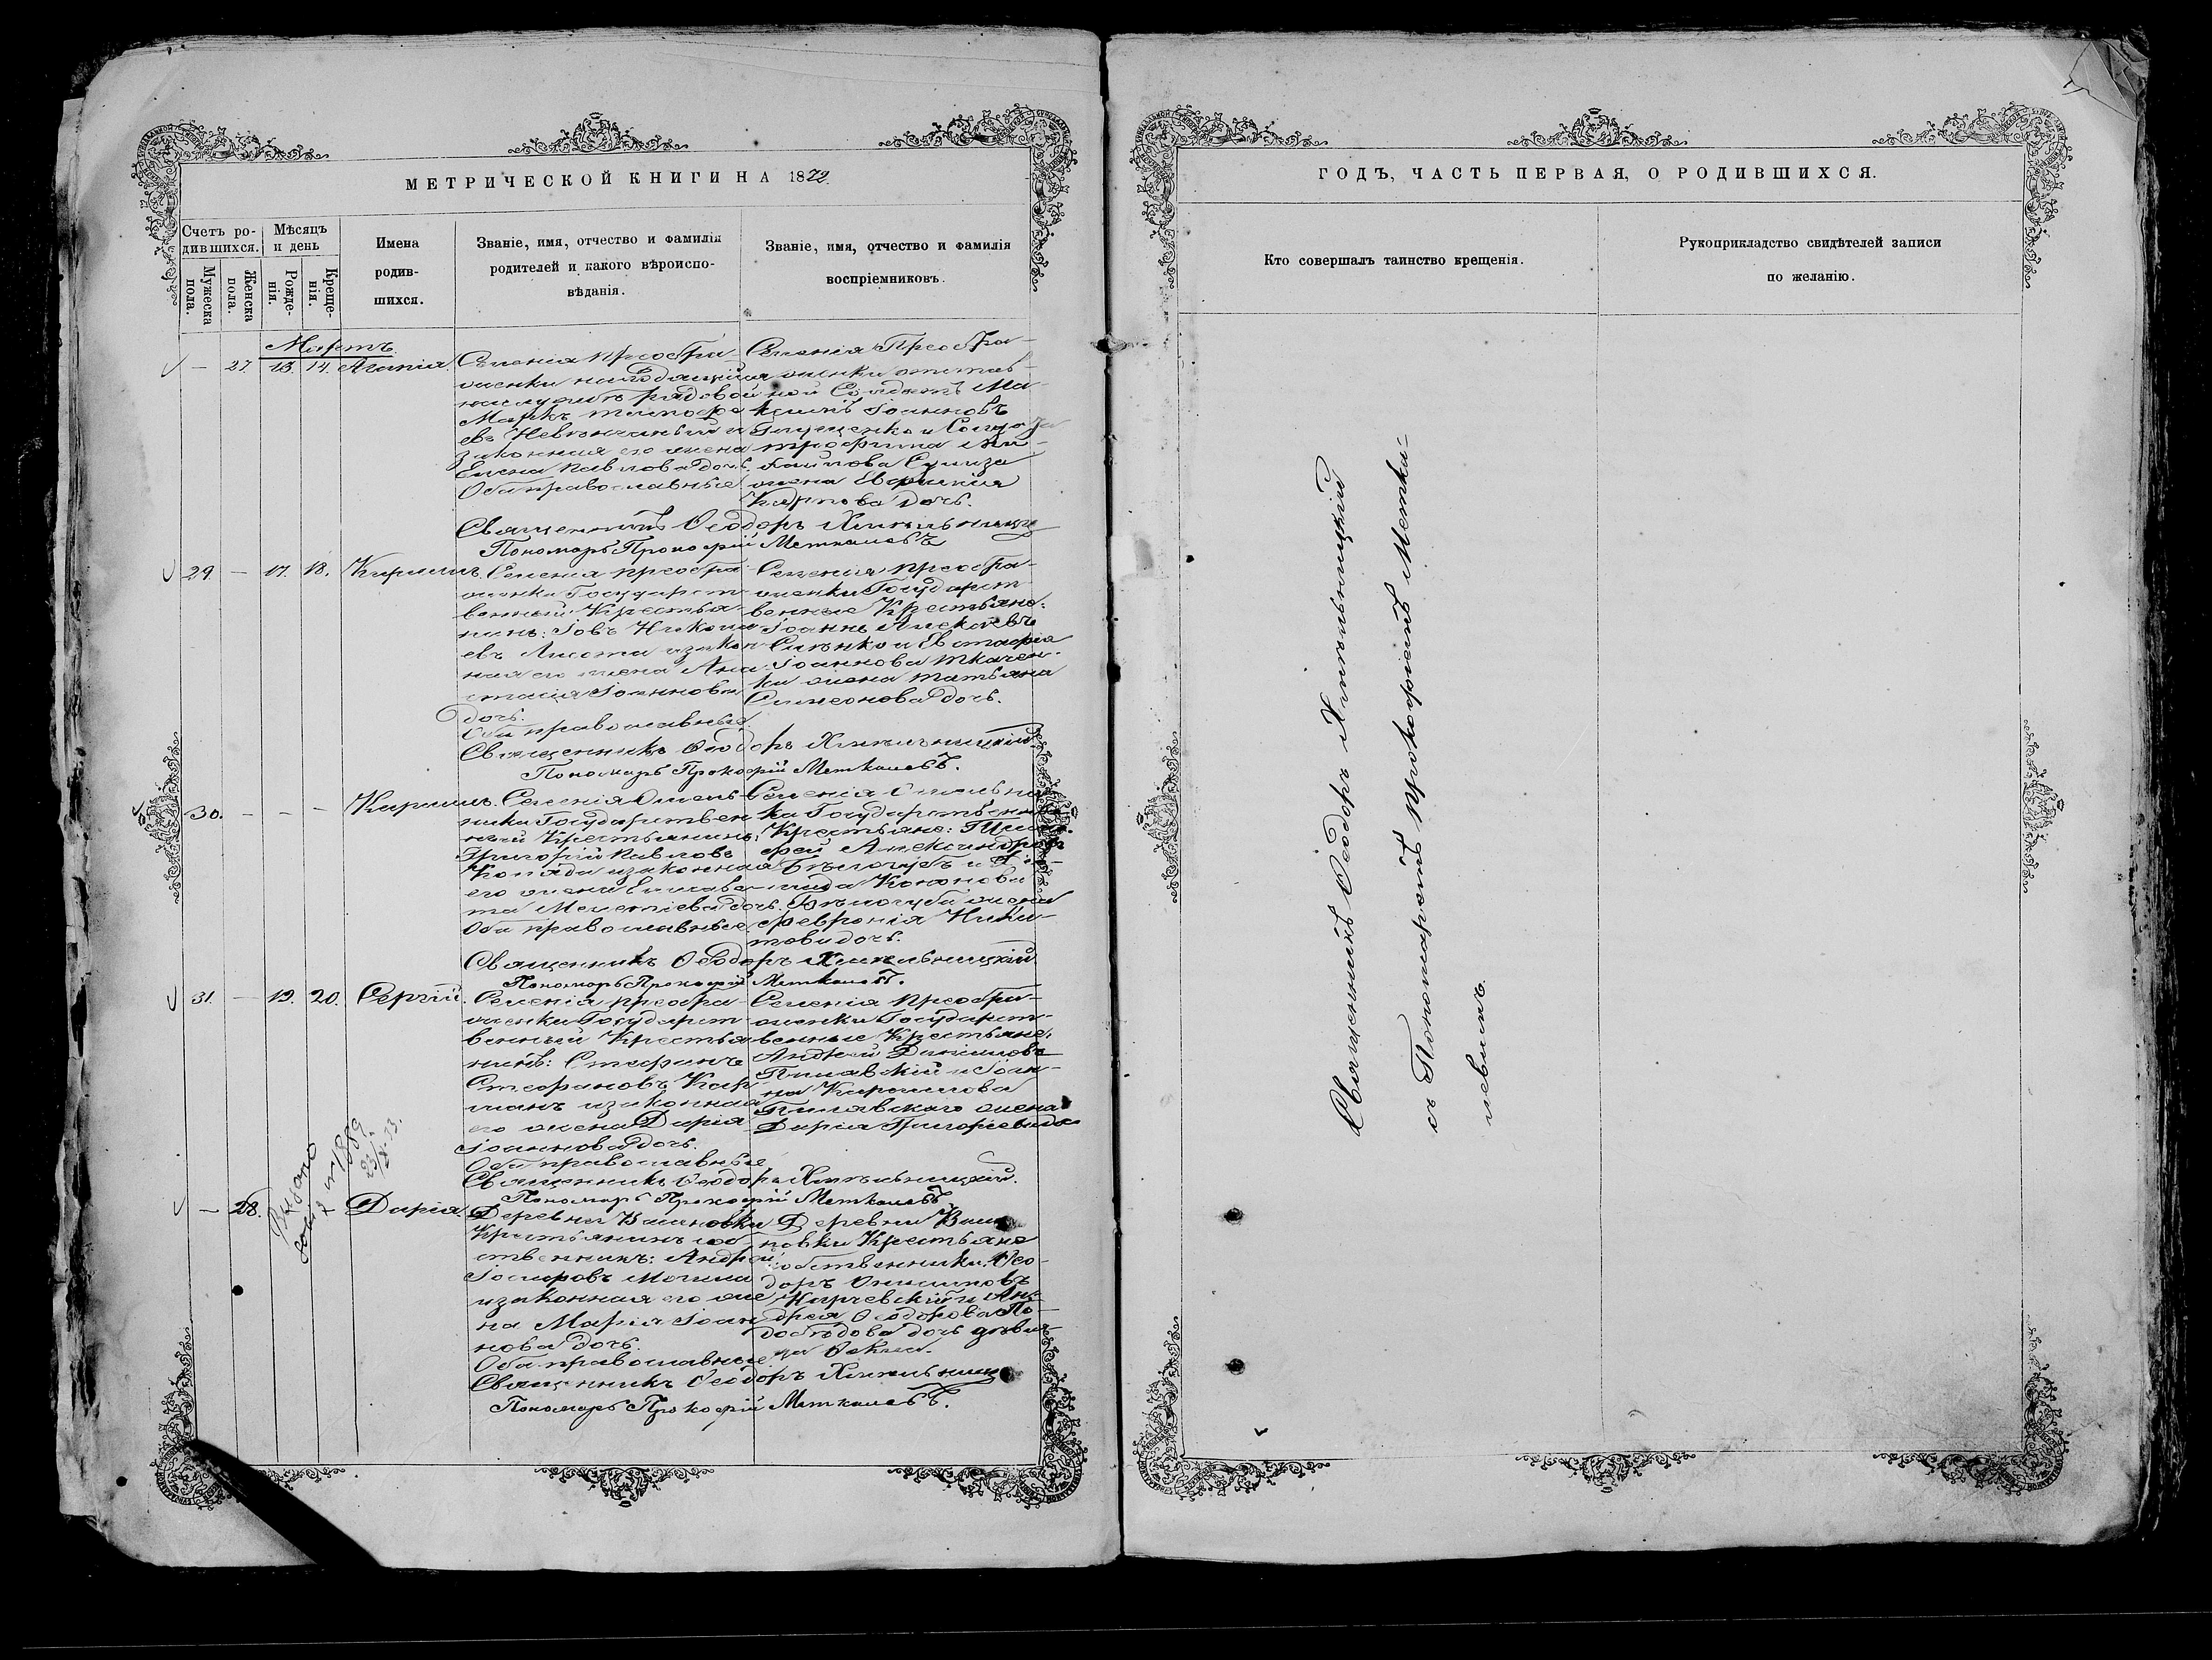 МЕТРИЧЕСКОЙ КНИГИ НА 1872.
Счетъ ро-
дившихся.
Мѣсяцъ
и день
Мужеска
пола.
Женска
пола.
Рожде-
нія.
Креще-
нія.
Имена
родив-
шихся.
Званіе, имя, отчество и фамилія
родителей и какого вѣроиспо-
вѣданія.
Званіе, имя, отчество и фамилія
воспріемниковъ.
Мартъ
— 27. 13. 14.
Селенія Преобра-
женки находящійся
рядовой
Марк
законная его жена
Елена Павлова дочь.
Оба православные
Селенія Преобра-
женки отстав-
ной Солдатъ Ма-
ксимъ Іоанновъ
жена Евфимія
Карпова дочь.
Священникъ Ѳеодоръ Хмельницкій
Пономарь Прокофій Меткалевъ
29. — 17. 18. Кириллъ.
Селенія Преобра-
женки Государст-
венный Крестья-
нинъ: Іовъ Никола-
евъ Лисота и закон-
ная его жена Ана-
стасія Іоаннова
дочь.
Оба православные.
Селенія Преобра-
женки Государст-
венные Крестьяне:
Іоаннъ Алексѣевъ
Силенко и Евстафія
Іоаннова Ткачен-
ка жена Татьяна
Симеонова дочь.
Священникъ Ѳеодоръ Хмельницкій
Пономарь Прокофій Меткалевъ.
30. — — — Кириллъ.
Селенія Омель-
ника Государствен-
ный Крестьянинъ:
Григорій Павловъ
Коляда и законная
его жена Елисаве-
та Мелетіева дочь.
Оба православные.
Селенія Омельни-
ка Государственн
Крестьяне: Тимо-
фей Александровъ
Бѣлогубъ и
Кононова
Бѣлогуба жена
Февронія Ники-
това дочь.
Священникъ Ѳеодоръ Хмельницкій
Пономарь Прокофій Меткалевъ.
31. — 19. 20. Сергій.
Селенія Преобра-
женки Государст-
венный Крестья-
нинъ: Стефанъ
Стефановъ Кар
манъ и законная
его жена Дарія
Іоаннова дочь.
Оба православные
Селенія Преобра-
женки Государст-
венные Крестьяне:
Андрей Даниловъ
Пилявскій и Іоан-
на Кириллова
Пилявскаго жена
Дарія Григорьева до
Священникъ Ѳеодоръ Хмельницкій.
Пономарь Прокофій Меткалевъ
— 28. Дарія.
1889
Деревни Васиновки
Крестьянинъ соб
ственникъ: Андрей
Іосифовъ Могила
и законная его же
на Марія Іоан
нова дочь.
Оба православные.
Деревни Васи
новки Крестьяне
собственники: Ѳео-
доръ Онисимовъ
Кирчевскій и Ан-
дрея Ѳеодорова По-
добѣдова дочь дѣви-
ца Ѳекла.
Священникъ Ѳеодоръ Хмельниц
Пономарь Прокофій Меткалевъ.
ГОДЪ, ЧАСТЬ ПЕРВАЯ, О РОДИВШИХСЯ.
Кто совершалъ таинство крещенія.
Рукоприкладство свидѣтелей записи
по желанію.
Священникъ Ѳеодоръ Хмельницкій
съ Пономаремъ Прокофіемъ Метка-
левымъ.